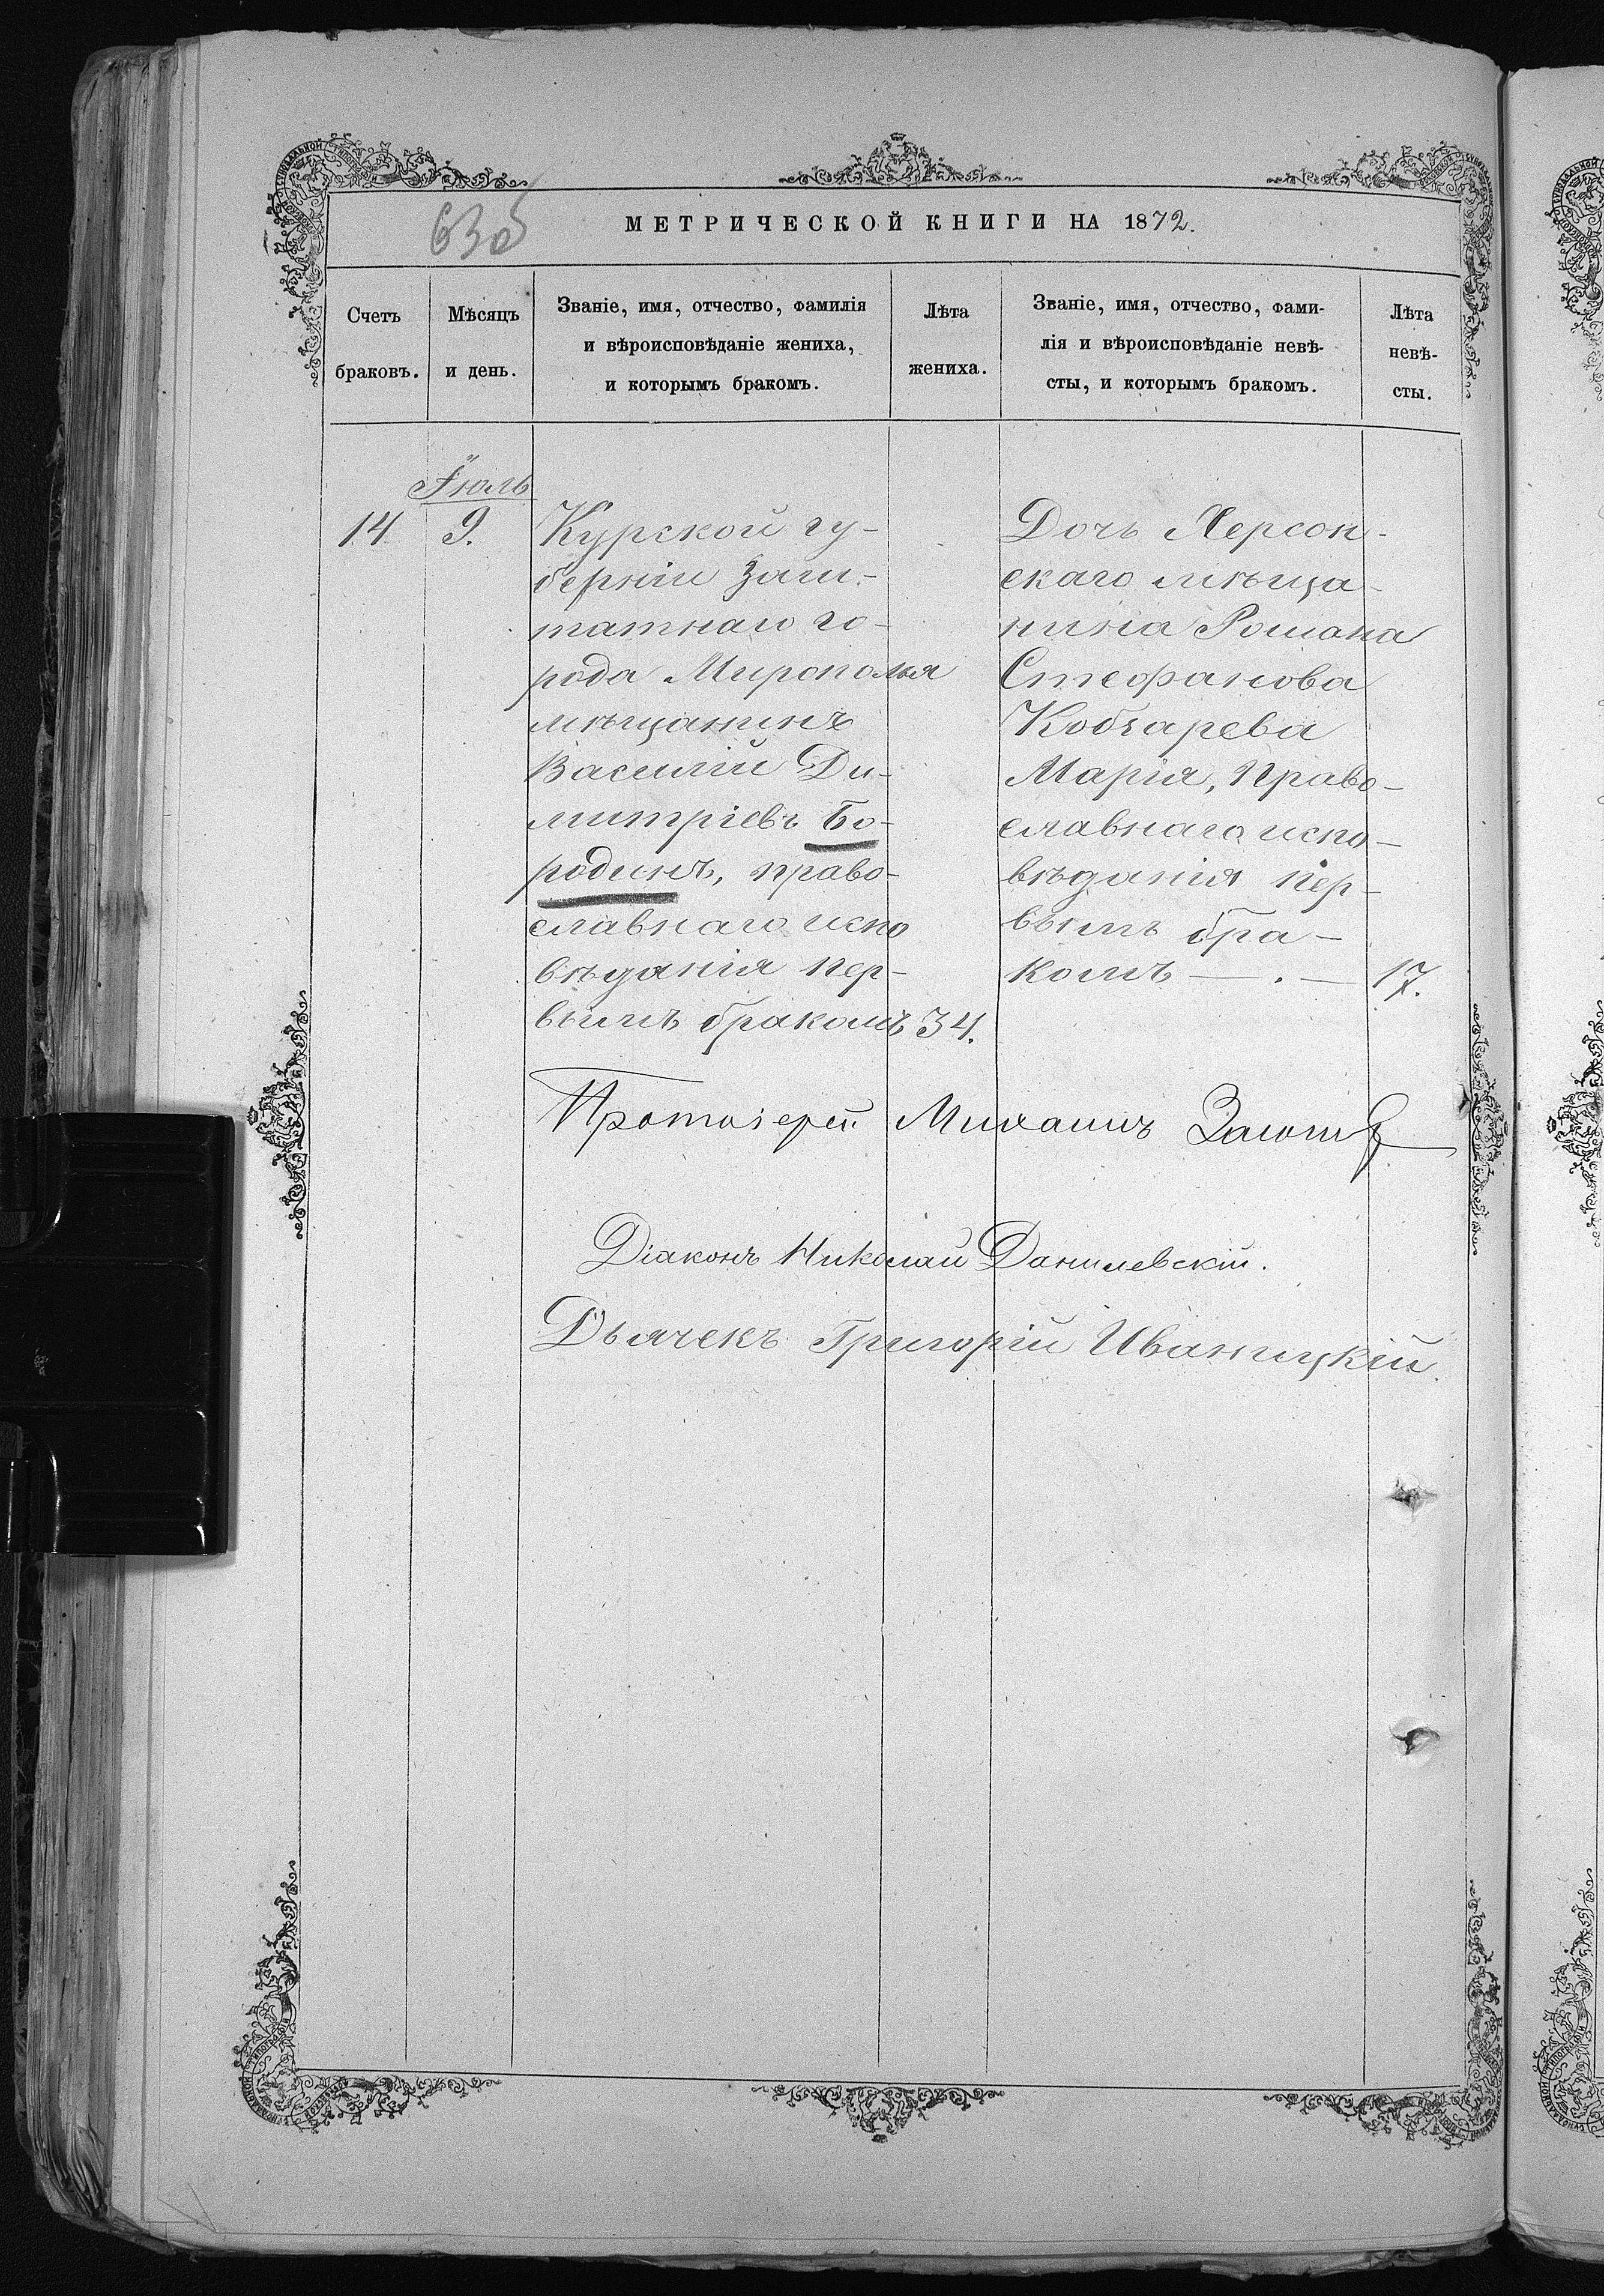 630б
МЕТРИЧЕСКОЙ КНИГИ НА 1872.
Счетъ
браковъ.
Мѣсяцъ
и день.
Званіе, имя, отчество, фамилія
и вѣроисповѣданіе жениха,
и которымъ бракомъ.
Лѣта
жениха.
Званіе, имя, отчество, фами-
лія и вѣроисповѣданіе невѣ-
сты, и которымъ бракомъ.
Лѣта
невѣ-
сты.
Іюль
14
9.
Курской гу-
берніи заш-
татнаго го-
рода Мирополья
мѣщанинъ
Василій Ди-
митріевъ Бо-
родинъ, право-
славнаго испо
вѣданія пер-
вымъ бракомъ
34.
Дочь Херсон-
скаго мѣща-
нина Романа
Стефанова
Кобзарева
Марія, право-
славнаго испо-
вѣданія пер-
вымъ бра-
комъ
17.
Протоіерей Михаилъ
Діаконъ Николай Данилевскій.
Дьячекъ Григорій Иваницкій.